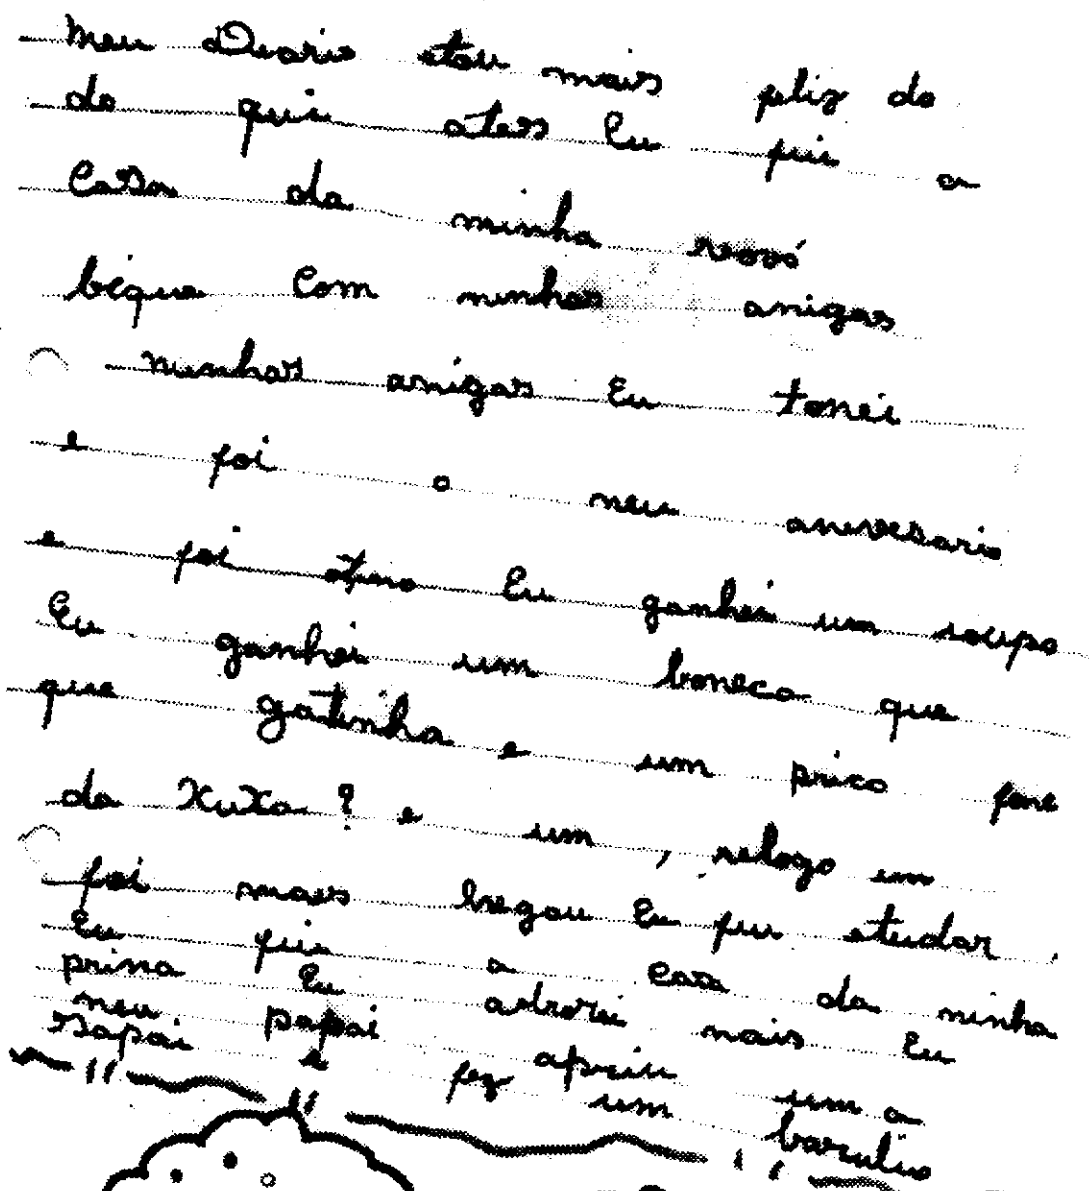 Meu Diario etou mais feliz do
do que ates Eu fui a
Casa da minha vovó
biquei Com ninhas anigas
ninhas anigas Eu tonei
e foi o neu anivesario
e foi otino Eu ganhei um roupo
Eu ganhei um boneca que
que gatinha e um prico fone
da Xuxa? e um, relogo em
foi mais legau Eu fui etudar.
Eu fui a Casa da ninha
prina Eu adorei mais Eu
neu papai apriu um a
Sapai e fez um barulio